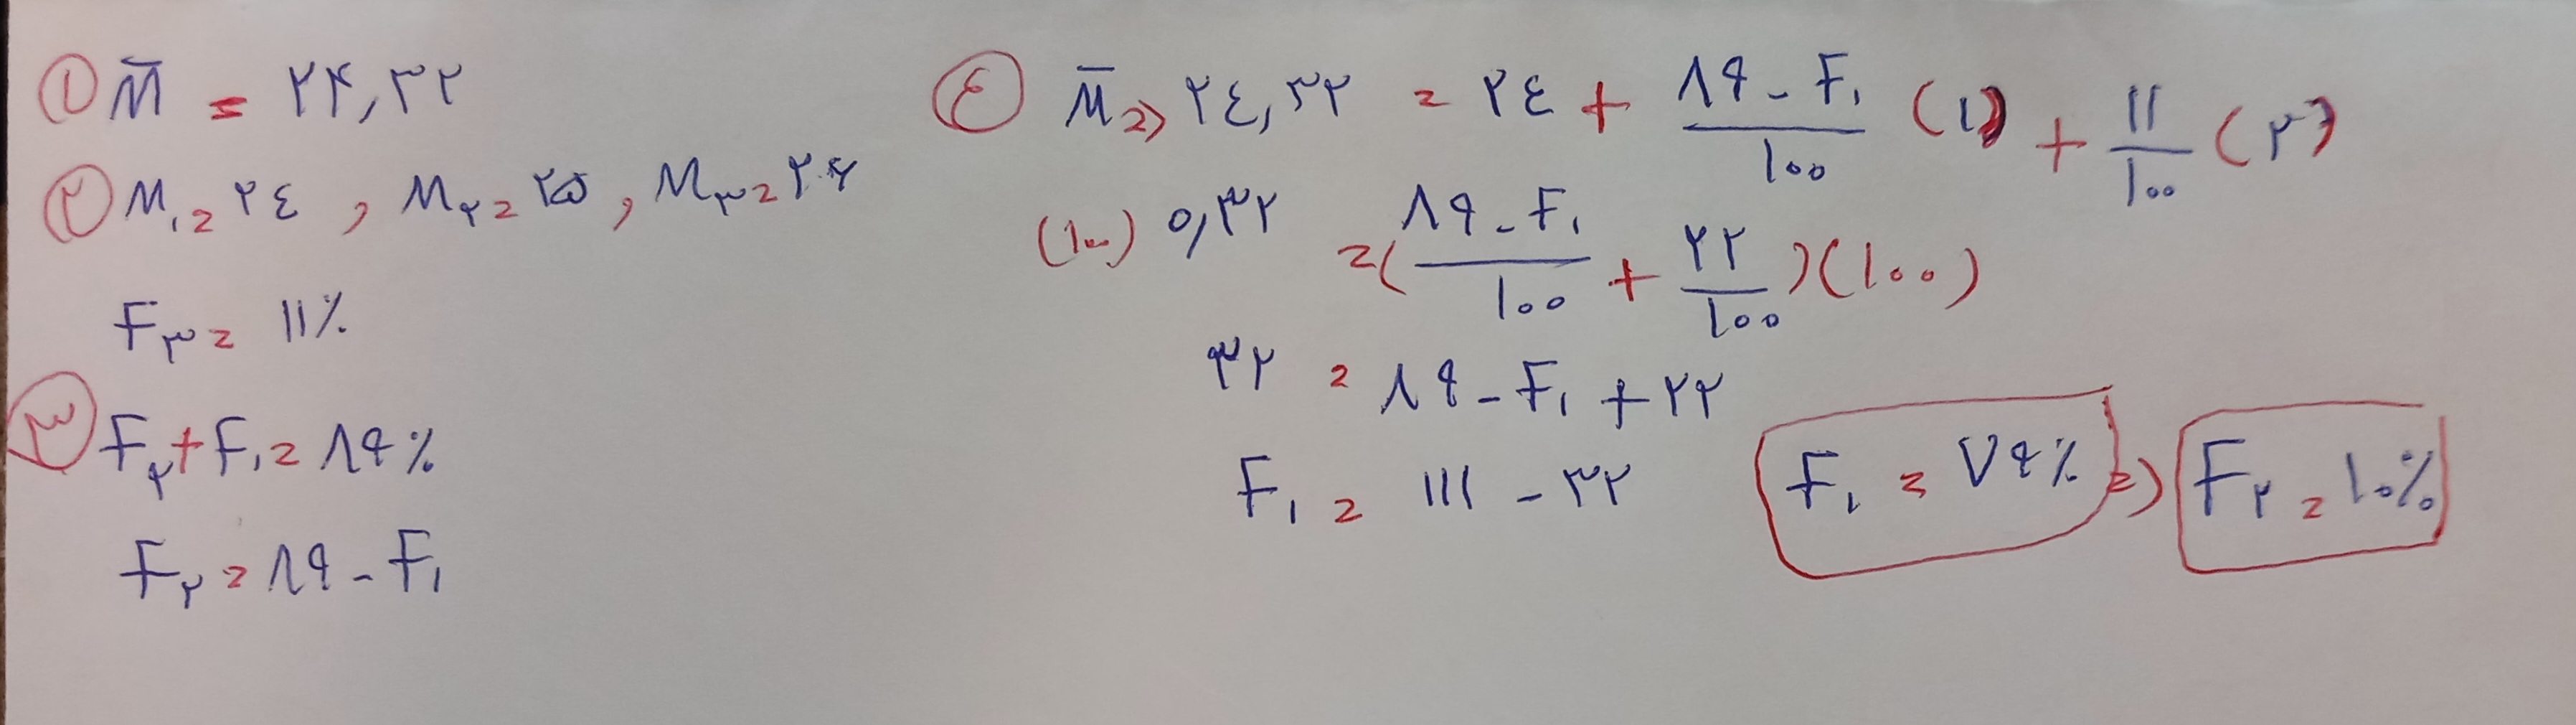 ① M̅ = ۲۴,۳۲
② M₁ = ۲٤ , M₂ = ۲۵ , M₃ = ۲۶
F₃ = ۱۱%
③ F₂ + F₁ = ۸۹%
F₂ = ۸۹ - F₁
④ M̅ => ۲٤,۳۲ = ۲٤ + (۸۹ - F₁)/۱۰۰ (۱) + ۱۱/۱۰۰ (۲)
(۱۰۰) ۰,۳۲ = ((۸۹ - F₁)/۱۰۰ + ۲۲/۱۰۰)(۱۰۰)
۳۲ = ۸۹ - F₁ + ۲۲
F₁ = ۱۱۱ - ۳۲
F₁ = ۷۹% => F₂ = ۱۰%